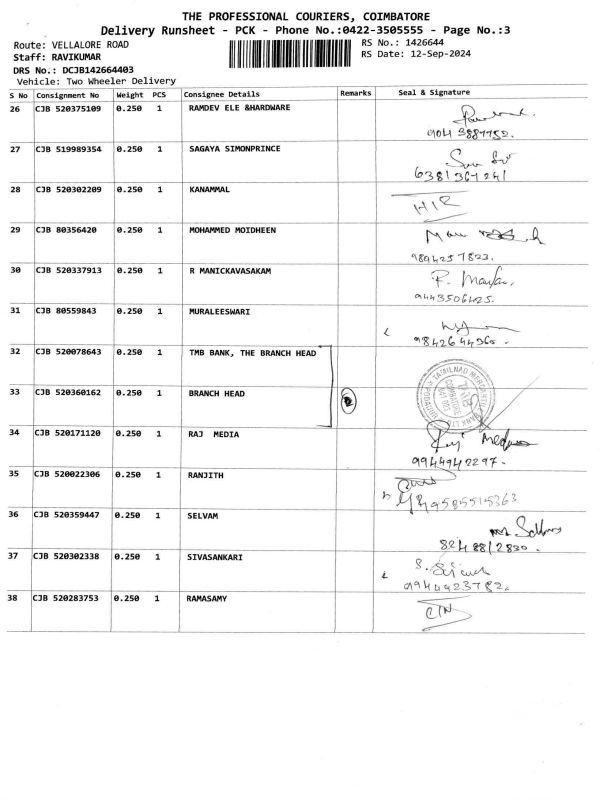 THE PROFESSIONAL COURIERS, COIMBATORE
Delivery Runsheet - PCK - Phone No.:0422-3505555 - Page No.:3
Route: VELLALORE ROAD RS No.: 1426644
Staff: RAVIKUMAR RS Date: 12-Sep-2024
DRS No.: DCJB142664403
Vehicle: Two Wheeler Delivery
S No Consignment No Weight PCS Consignee Details Remarks Seal & Signature
26 CJB 520375109 0.250 1 RAMDEV ELE &HARDWARE
27 CJB 519989354 0.250 1 SAGAYA SIMONPRINCE
6381367241
28 CJB 520302209 0.250 1 KANAMMAL
HIR
29 CJB 80356420 0.250 1 MOHAMMED MOIDHEEN
9894257823.
30 CJB 520337913 0.250 1 R MANICKAVASAKAM
9443506425.
31 CJB 80559843 0.250 1 MURALEESWARI
9842644360.
32 CJB 520078643 0.250 1 TMB BANK, THE BRANCH HEAD
33 CJB 520360162 0.250 1 BRANCH HEAD 2
34 CJB 520171120 0.250 1 RAJ MEDIA Raj Media
9944942297.
35 CJB 520022306 0.250 1 RANJITH
9585515363
36 CJB 520359447 0.250 1 SELVAM
37 CJB 520302338 0.250 1 SIVASANKARI
9944423782.
38 CJB 520283753 0.250 1 RAMASAMY